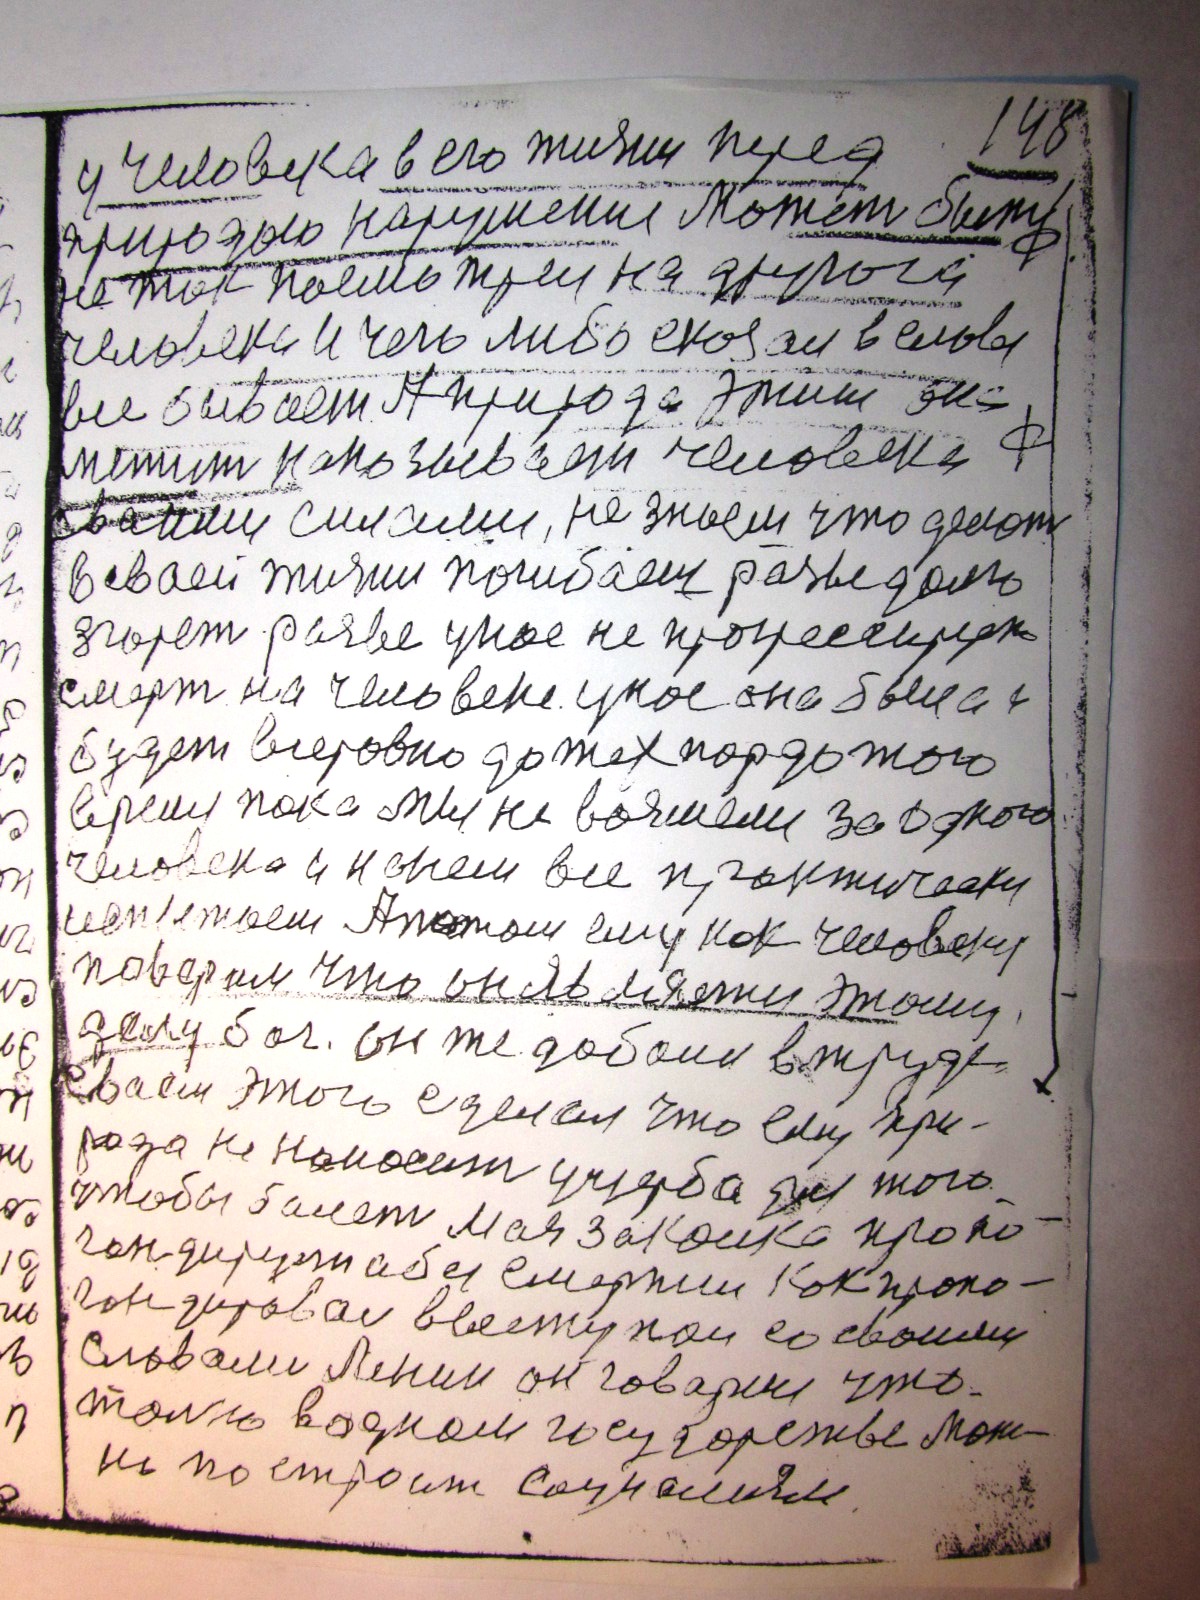 148
у человека в его жизни перед
природою нарушение Может быть
не так посмотрел на другога
человека и чего либо сказал в слове
все бывает А природа этим
накозывает человека
сваими силами, не знаем что делат
в сваей жизни погибаем разве долго
згорет разве у нас не прогрессирует
смерт на человеке у нас она была и
будет всеровно до тех пор до того
время пока мы не возмем за одного
человека и на нем все практически
А потом ему как человеку
поверим что он является этому
делу бог. он же добался в труде
сваем этого сделал что ему при-
рода не наносит ущерба для того
чтобы балет Мая закалка пропо-
гандирует абы смерти как пропо-
гандировал в своими
словами Ленин он говарил что
толко в одном государстве мож-
но построит социализм